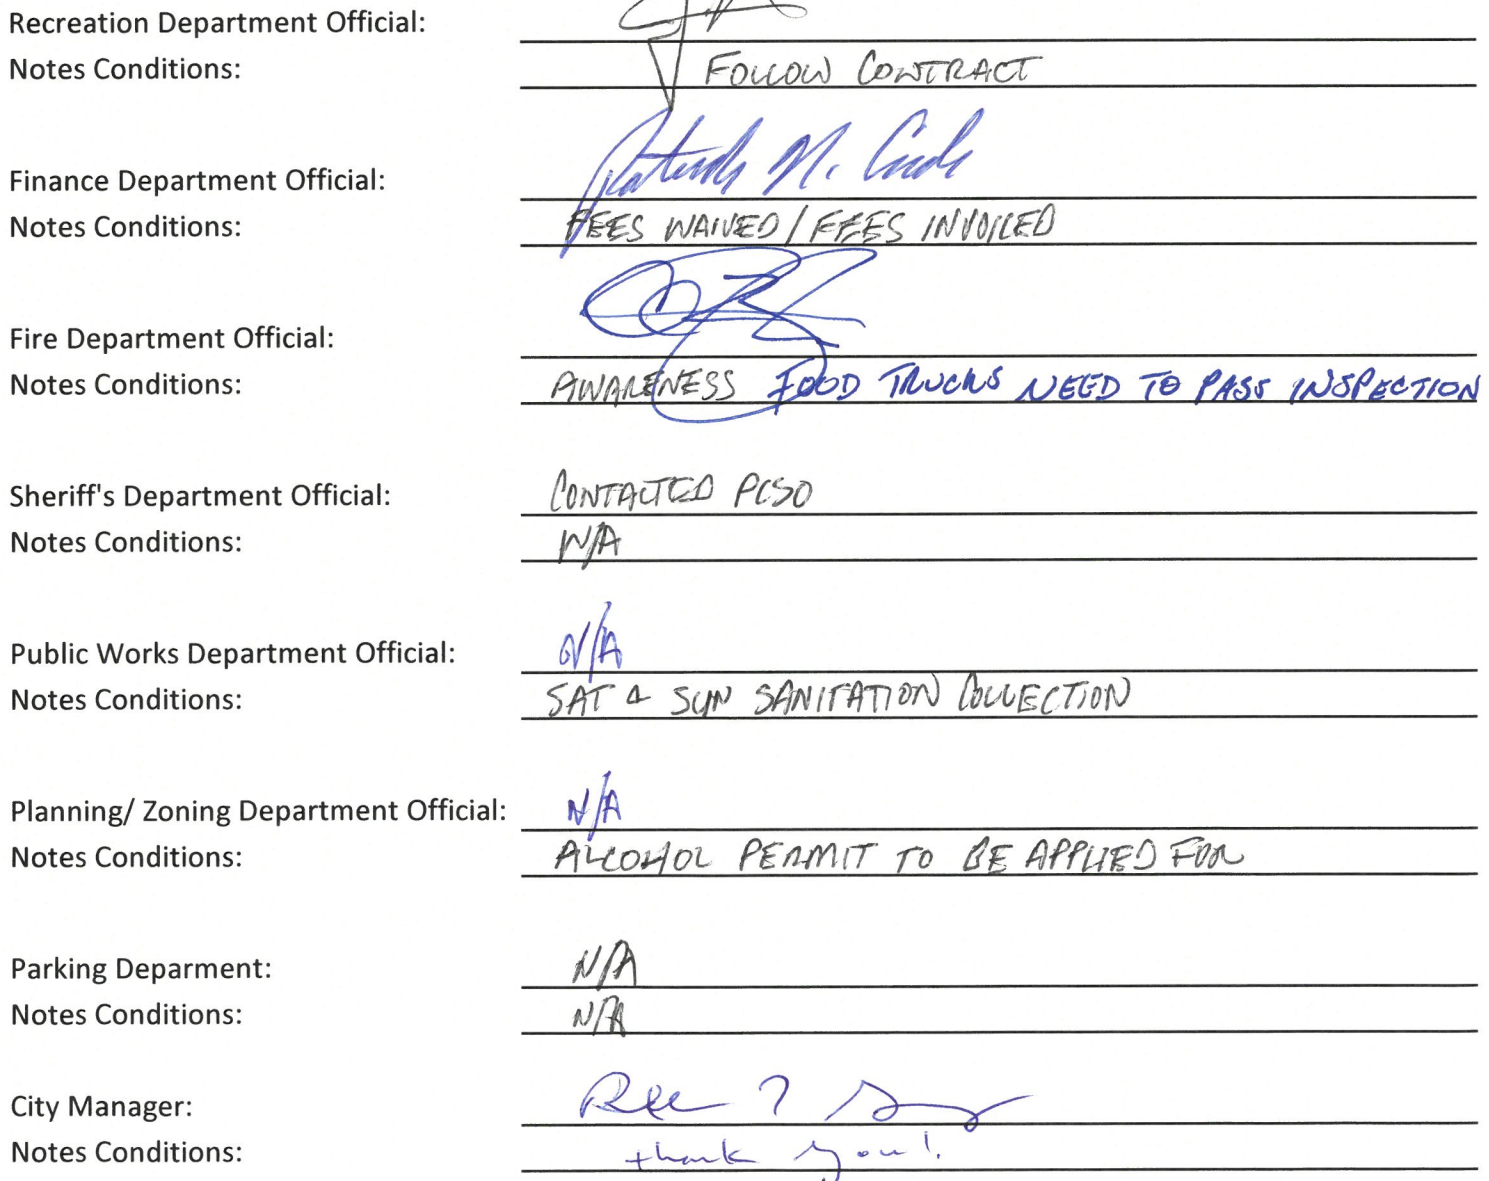 Recreation Department Official:
Notes Conditions: FOLLOW CONTRACT
Finance Department Official: M.
Notes Conditions: FEES WAIVED / FEES INVOICED
Fire Department Official:
Notes Conditions: AWARENESS FOOD TRUCKS NEED TO PASS INSPECTION
Sheriff's Department Official: CONTACTED PCSO
Notes Conditions: N/A
Public Works Department Official: N/A
Notes Conditions: SAT & SUN SANITATION COLLECTION
Planning/ Zoning Department Official: N/A
Notes Conditions: ALCOHOL PERMIT TO BE APPLIED FOR
Parking Deparment: N/A
Notes Conditions: N/A
City Manager:
Notes Conditions: thank you!